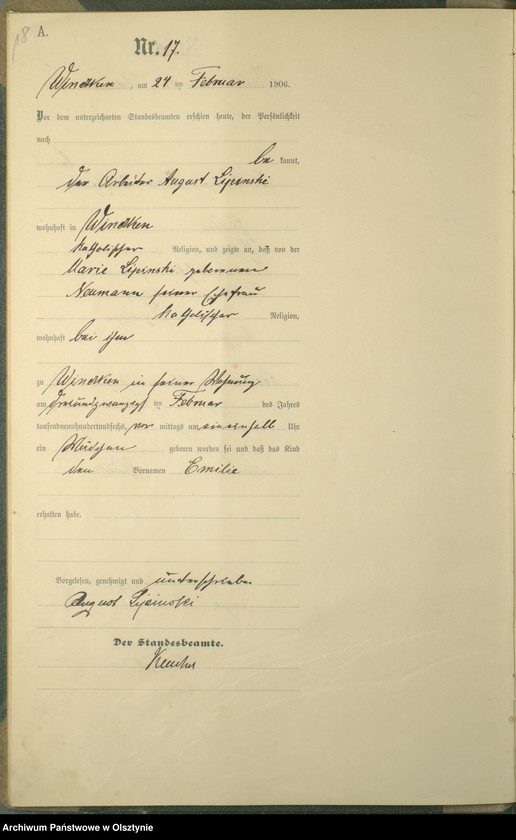 18
A.
Nr. 17.
Windtken, am 24 ten Februar 1906.
Vor dem unterzeichneten Standesbeamten erschien heute, der Persönlichkeit
nach
be kannt,
der Arbeiter August Lipinski
wohnhaft in Windtken
katholischer Religion, und zeigte an, daß von der
Marie Lipinski geborenen
Neumann seiner Ehefrau
katholischer Religion,
wohnhaft bei ihm
zu Windtken in seiner Wohnung
am dreiundzwanzigsten Februar des Jahres
tausendneunhundertundsechs, vor mittags um eineinhalb Uhr
ein Mädchen geboren worden sei und daß das Kind
den Vornamen Emilie
erhalten habe.
Vorgelesen, genehmigt und unterschrieben
August Lipinski
Der Standesbeamte.
Archiwum Państwowe w Olsztynie